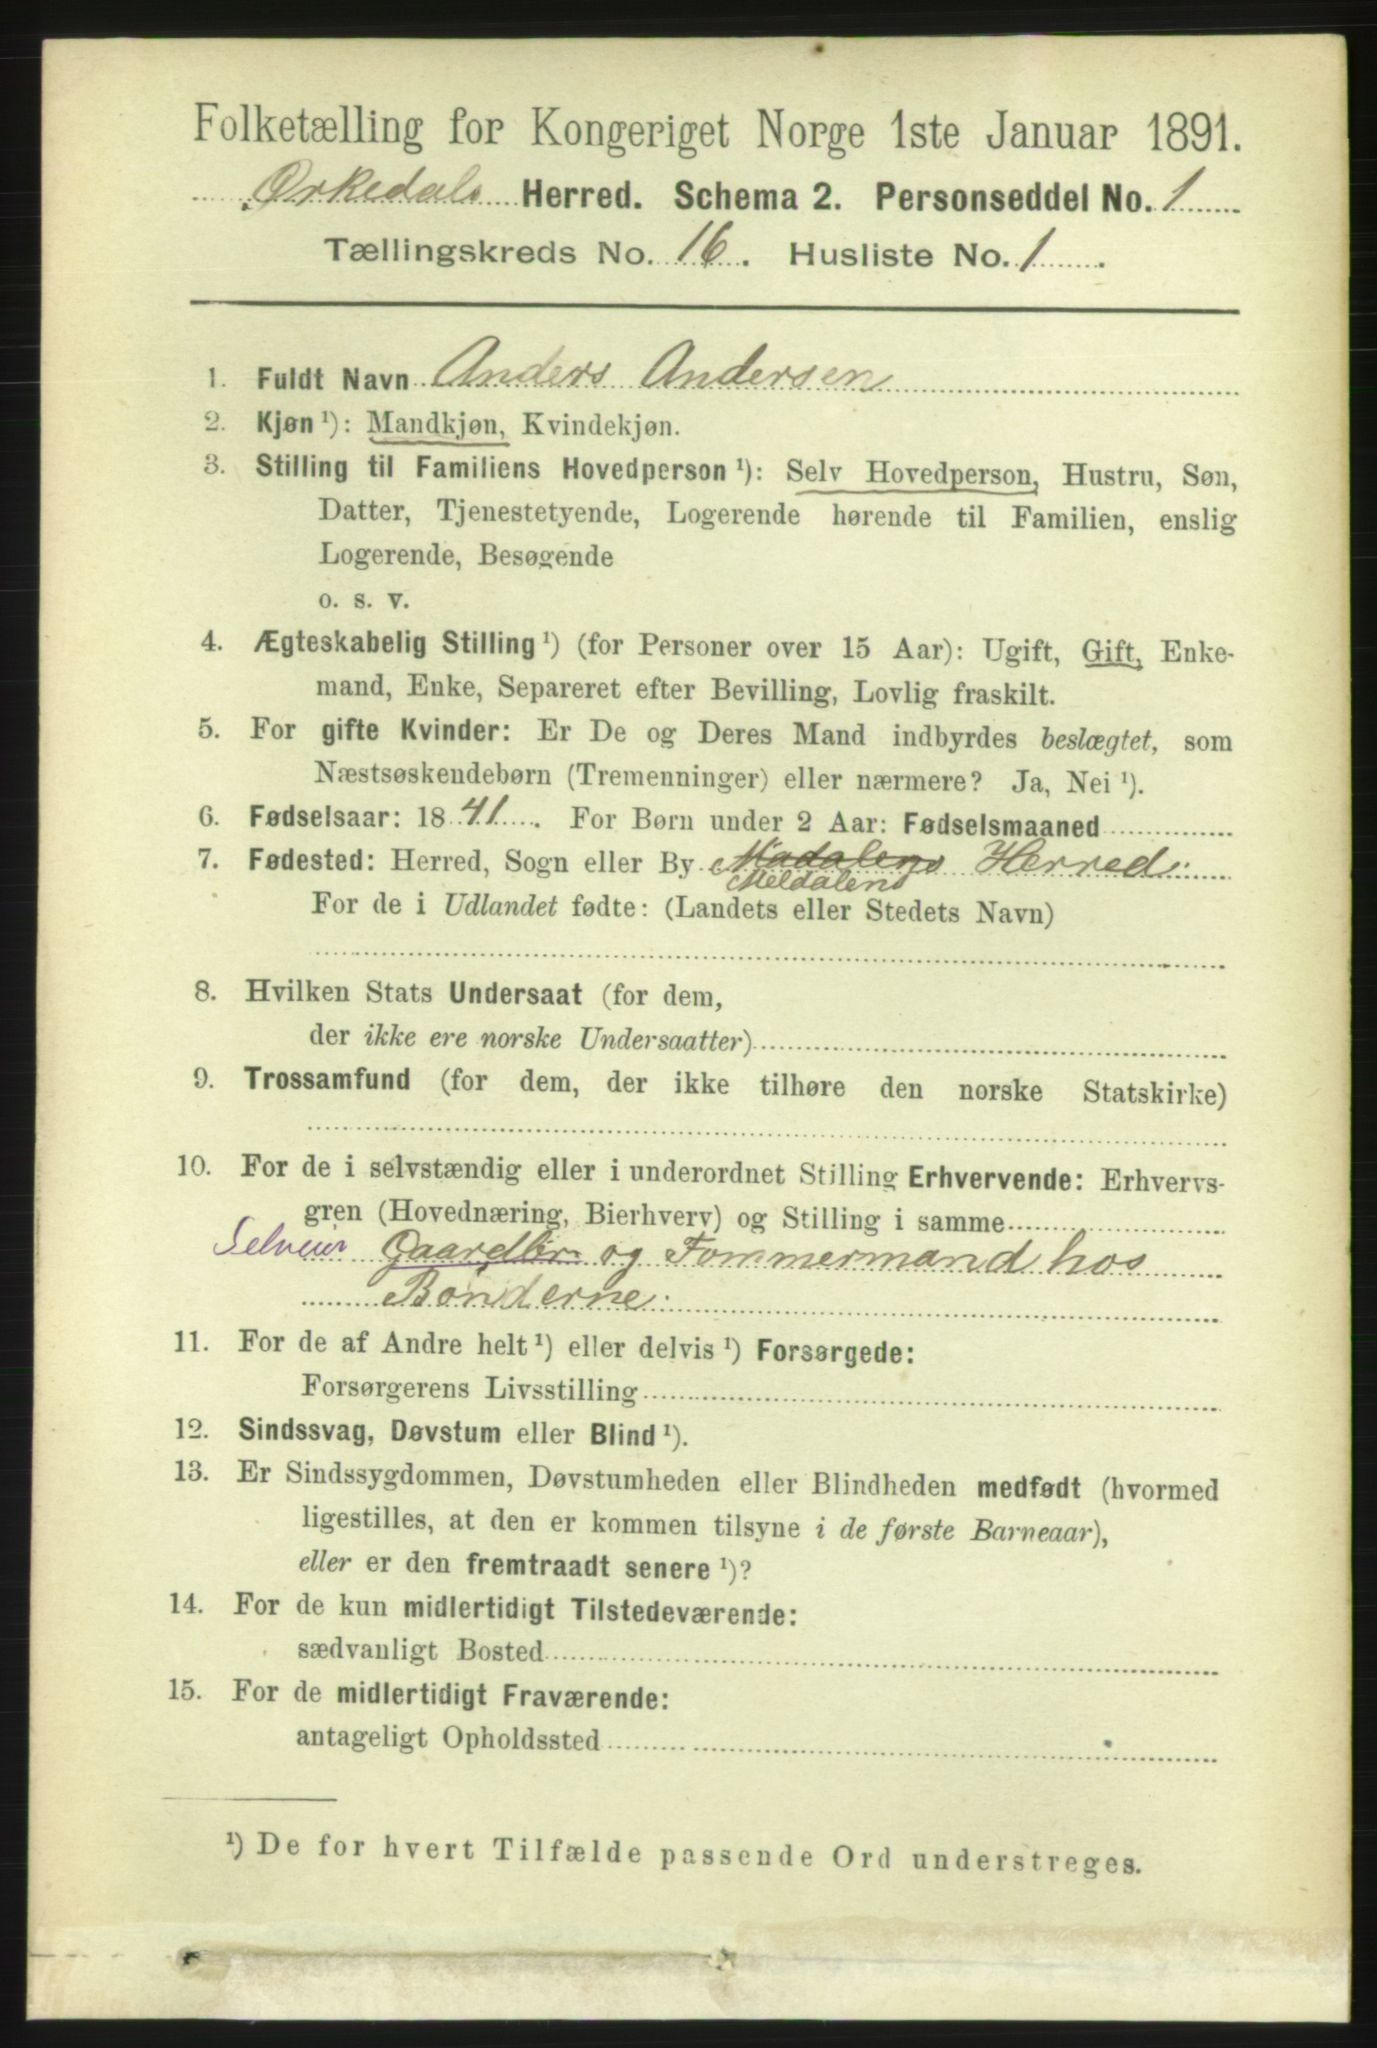 Folketælling for Kongeriget Norge 1ste Januar 1891.
Ørkedals Herred. Schema 2. Personseddel No. 1
Tællingskreds No. 16. Husliste No. 1.
1. Fuldt Navn Anders Andersen
2. Kjøn ¹): Mandkjøn, Kvindekjøn.
3. Stilling til Familiens Hovedperson ¹): Selv Hovedperson, Hustru, Søn,
Datter, Tjenestetyende, Logerende hørende til Familien, enslig
Logerende, Besøgende
o. s. v.
4. Ægteskabelig Stilling ¹) (for Personer over 15 Aar): Ugift, Gift, Enke-
mand, Enke, Separeret efter Bevilling, Lovlig fraskilt.
5. For gifte Kvinder: Er De og Deres Mand indbyrdes beslægtet, som
Næstsøskendebørn (Tremenninger) eller nærmere? Ja, Nei ¹).
6. Fødselsaar: 1841. For Børn under 2 Aar: Fødselsmaaned
7. Fødested: Herred, Sogn eller By Madalens Herred.
Meldalens
For de i Udlandet fødte: (Landets eller Stedets Navn)
8. Hvilken Stats Undersaat (for dem,
der ikke ere norske Undersaatter)
9. Trossamfund (for dem, der ikke tilhøre den norske Statskirke)
10. For de i selvstændig eller i underordnet Stilling Erhvervende: Erhvervs-
gren (Hovednæring, Bierhverv) og Stilling i samme
Selveier Gaardbr og Tommermand hos
Bønderne.
11. For de af Andre helt ¹) eller delvis ¹) Forsørgede:
Forsørgerens Livsstilling
12. Sindssvag, Døvstum eller Blind ¹).
13. Er Sindssygdommen, Døvstumheden eller Blindheden medfødt (hvormed
ligestilles, at den er kommen tilsyne i de første Barneaar),
eller er den fremtraadt senere ¹)?
14. For de kun midlertidigt Tilstedeværende:
sædvanligt Bosted
15. For de midlertidigt Fraværende:
antageligt Opholdssted
¹) De for hvert Tilfælde passende Ord understreges.